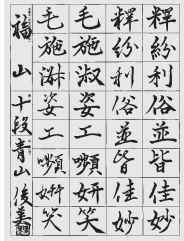 釋紛利俗並皆佳妙
釋紛利俗並皆佳妙
毛施淑姿工嚬妍笑
毛施淑姿工嚬妍笑
福山十段青山